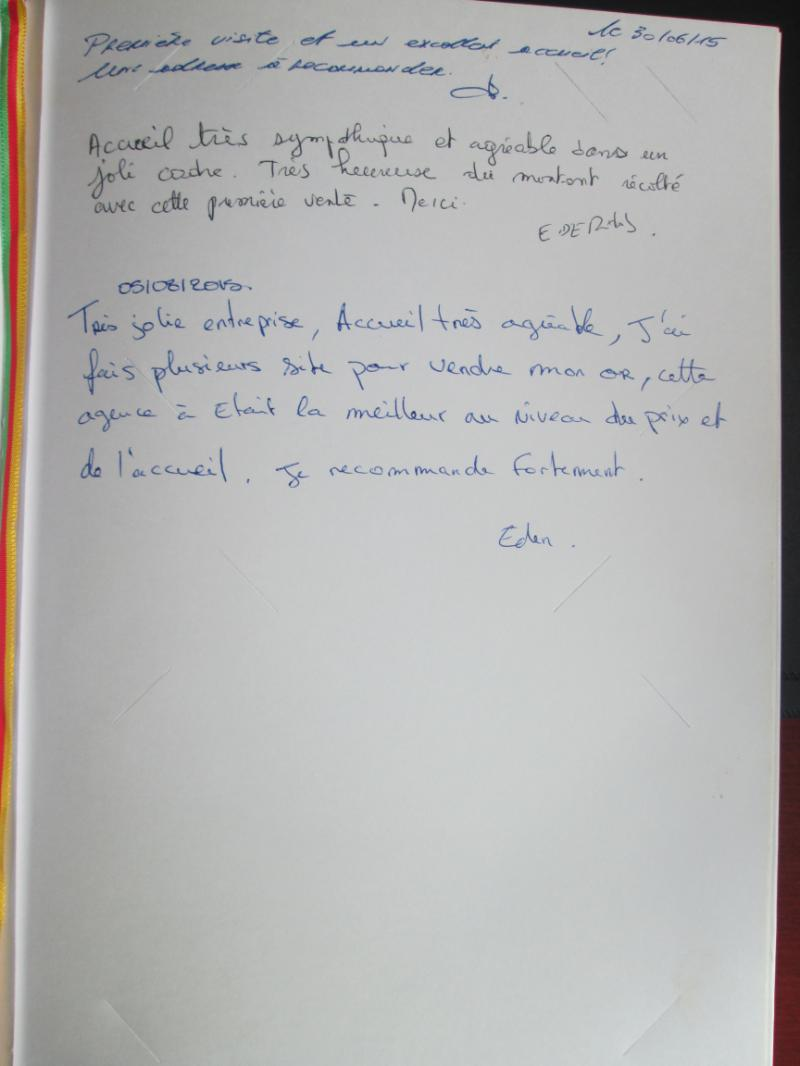 le 30/06/15
Première visite et un excellent accueil!
Une adresse à recommander.
Accueil très sympthique et agréable dans un
joli cadre. Très heureuse du montant récolté
avec cette première vente. Merci.
05/08/2015.
Très jolie entreprise, Accueil très agréable, J'ai
fais plusieurs site pour vendre mon or, cette
agence à Etait la meilleur au Niveau du prix et
de l'accueil. Je recommande fortement.
Eden.